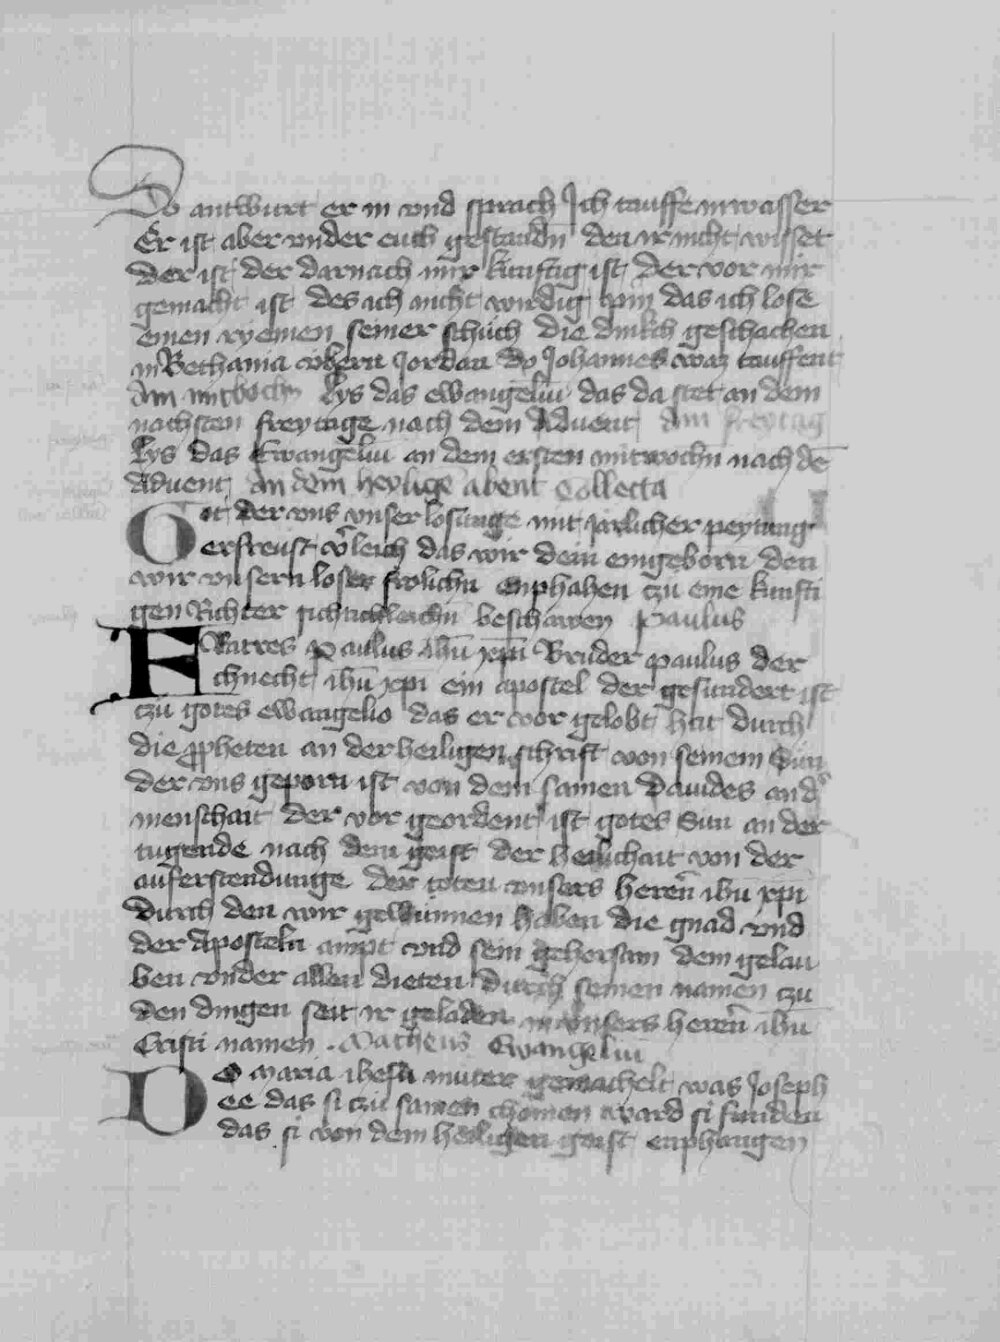 Do antwurt er in vnd sprach Ich tauffe in wasser
Er ist aber vnder euch gestandn den ir nicht wisset
der ist der darnach mir kunftig ist der vor mir
gemacht ist des ich nicht wirdig pin das ich lose
einen ryemen seiner schuch die dinkch geschachen
in Bethania vbern Jordan do Johannes waz tauffent
Am mitbochn Lys das ewangeliu das da stet an dem
nachsten freytage nach dem Aduent Am freytag
Lys das Ewangeliu an dem ersten mitwochn nach de
Aduent An dem heylige abent Collecta
Got der vns vnser losunge mit jarlicher peytung
erfreust v̉leich das wir dein eingeborn den
wir vnsern loser frolichn enphahen czu eine kunfti
gen Richter sichticleichn beschawen Paulus
FRatres Paulus ihu xpi Bruder paulus der
chnecht ihu xpi ein apostel der gesundert ist
czu gotes ewangelio das er vor gelobt hat durch
die ppheten an der heiligen schrift von seinem Sun
der vns geporn ist von dem samen Dauides an d̉
menschait der vor geordent ist gotes Sun an der
tugende nach dem geist der heilichait von der
auferstendunge der toten vnsers heren ihu xpi
durch den wir gewunnen haben die gnad vnd
der Aposteln ampt vnd sein gehorsam dem gelau
ben vnder allen dieten durch seinen namen czu
den dingen seit ir geladen in vnsers heren ihu
Cristi namen . Matheus Ewangeliu
DO maria ihesu muter gemachelt was Joseph
ee das si czu samen chomen ward si funden
das si von dem heiligen geist enphangen